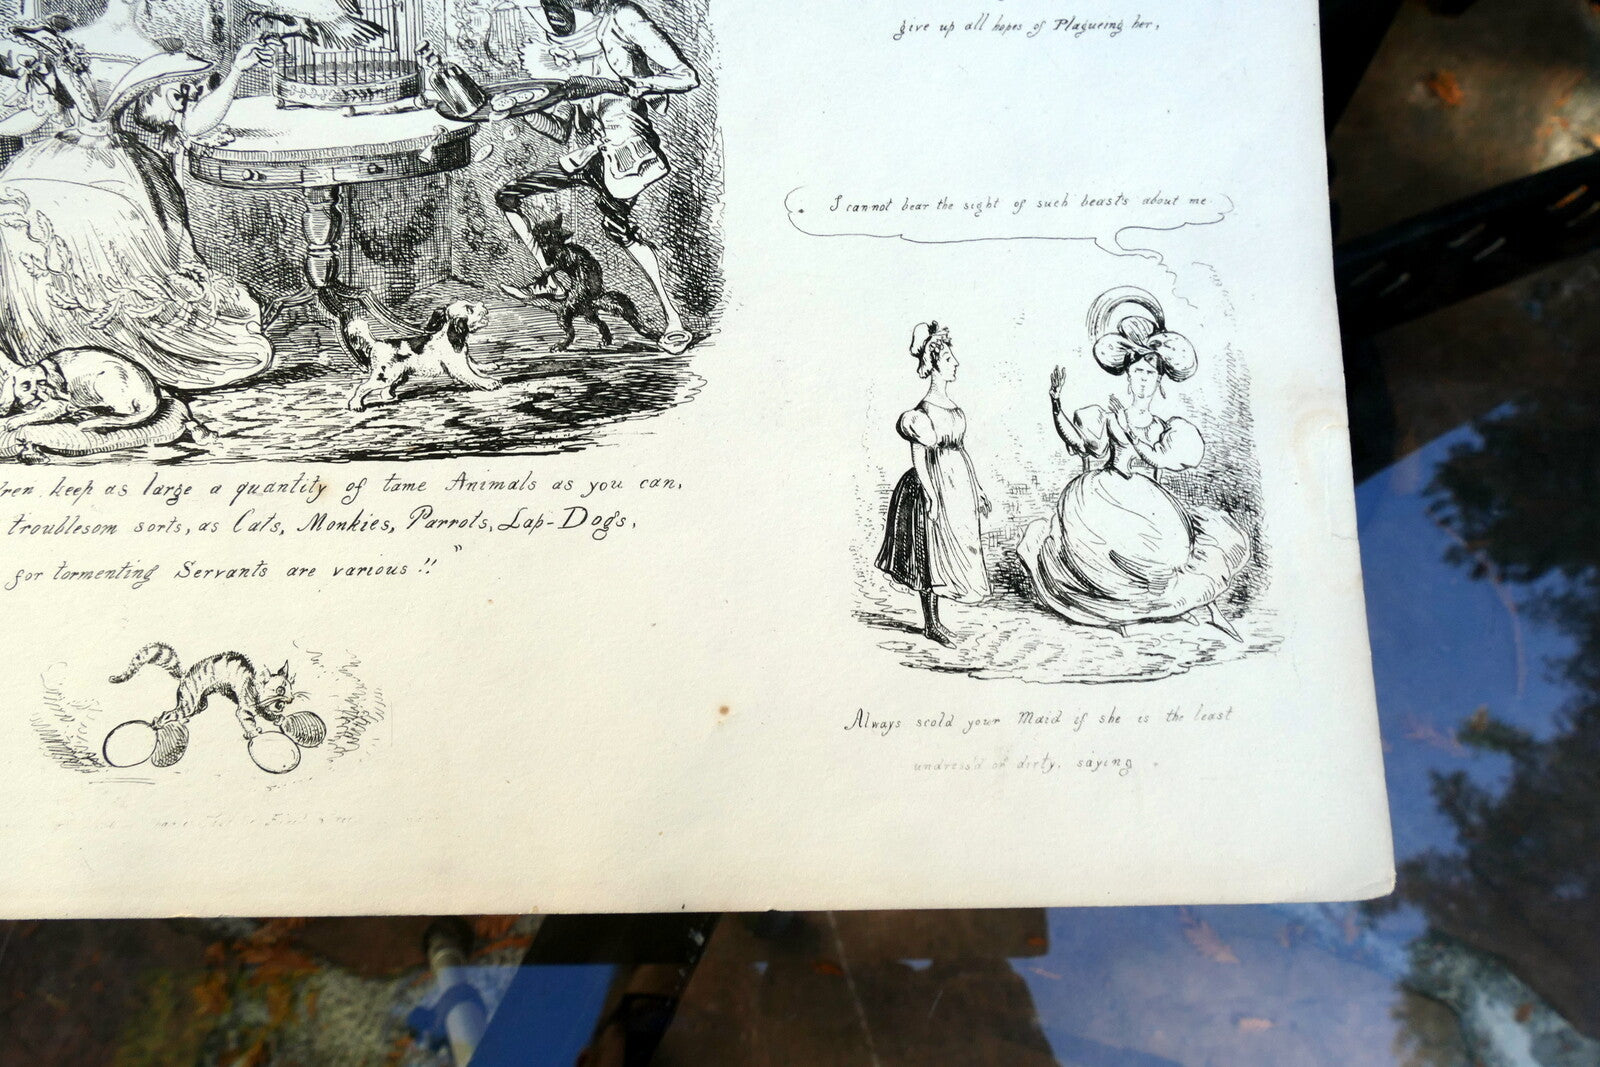 give up all hopes of Plagueing her,
I cannot bear the sight of such beasts about me
keep as large a quantity of tame Animals as you can,
troublesom sorts, as Cats, Monkies, Parrots, Lap-Dogs,
for tormenting Servants are various !! "
Always scold your Maid if she is the least
undress'd or dirty, saying